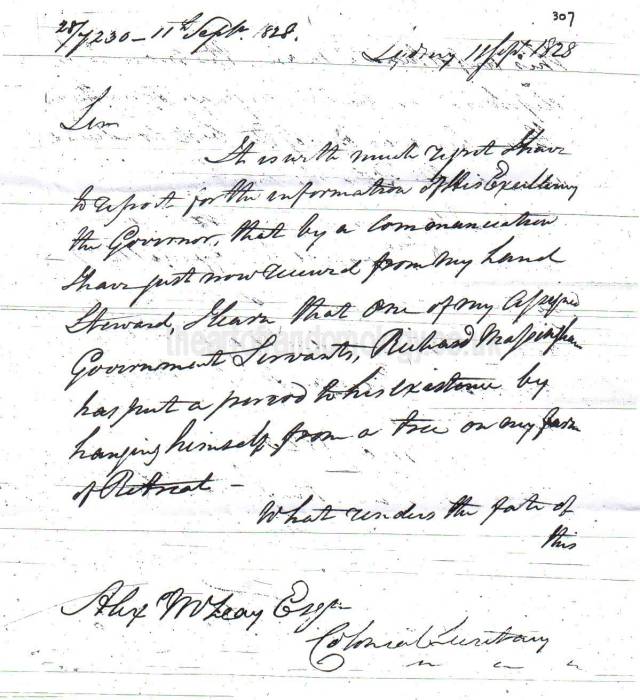 307
28/7230 - 11th Septr. 1828.
Sydney 11 Sept. 1828
Sir
It is with much regret I have
to report for the information of His Excellency
the Governor, that by a communication
I have just now received from my Land
Steward, I learn that one of my assigned
Government Servants, Richard Massingham
has put a period to his existence by
hanging himself from a tree on my farm
of Retreat -
What renders the fate of
this
Alex McLeay Esqr
Colonial Secretary